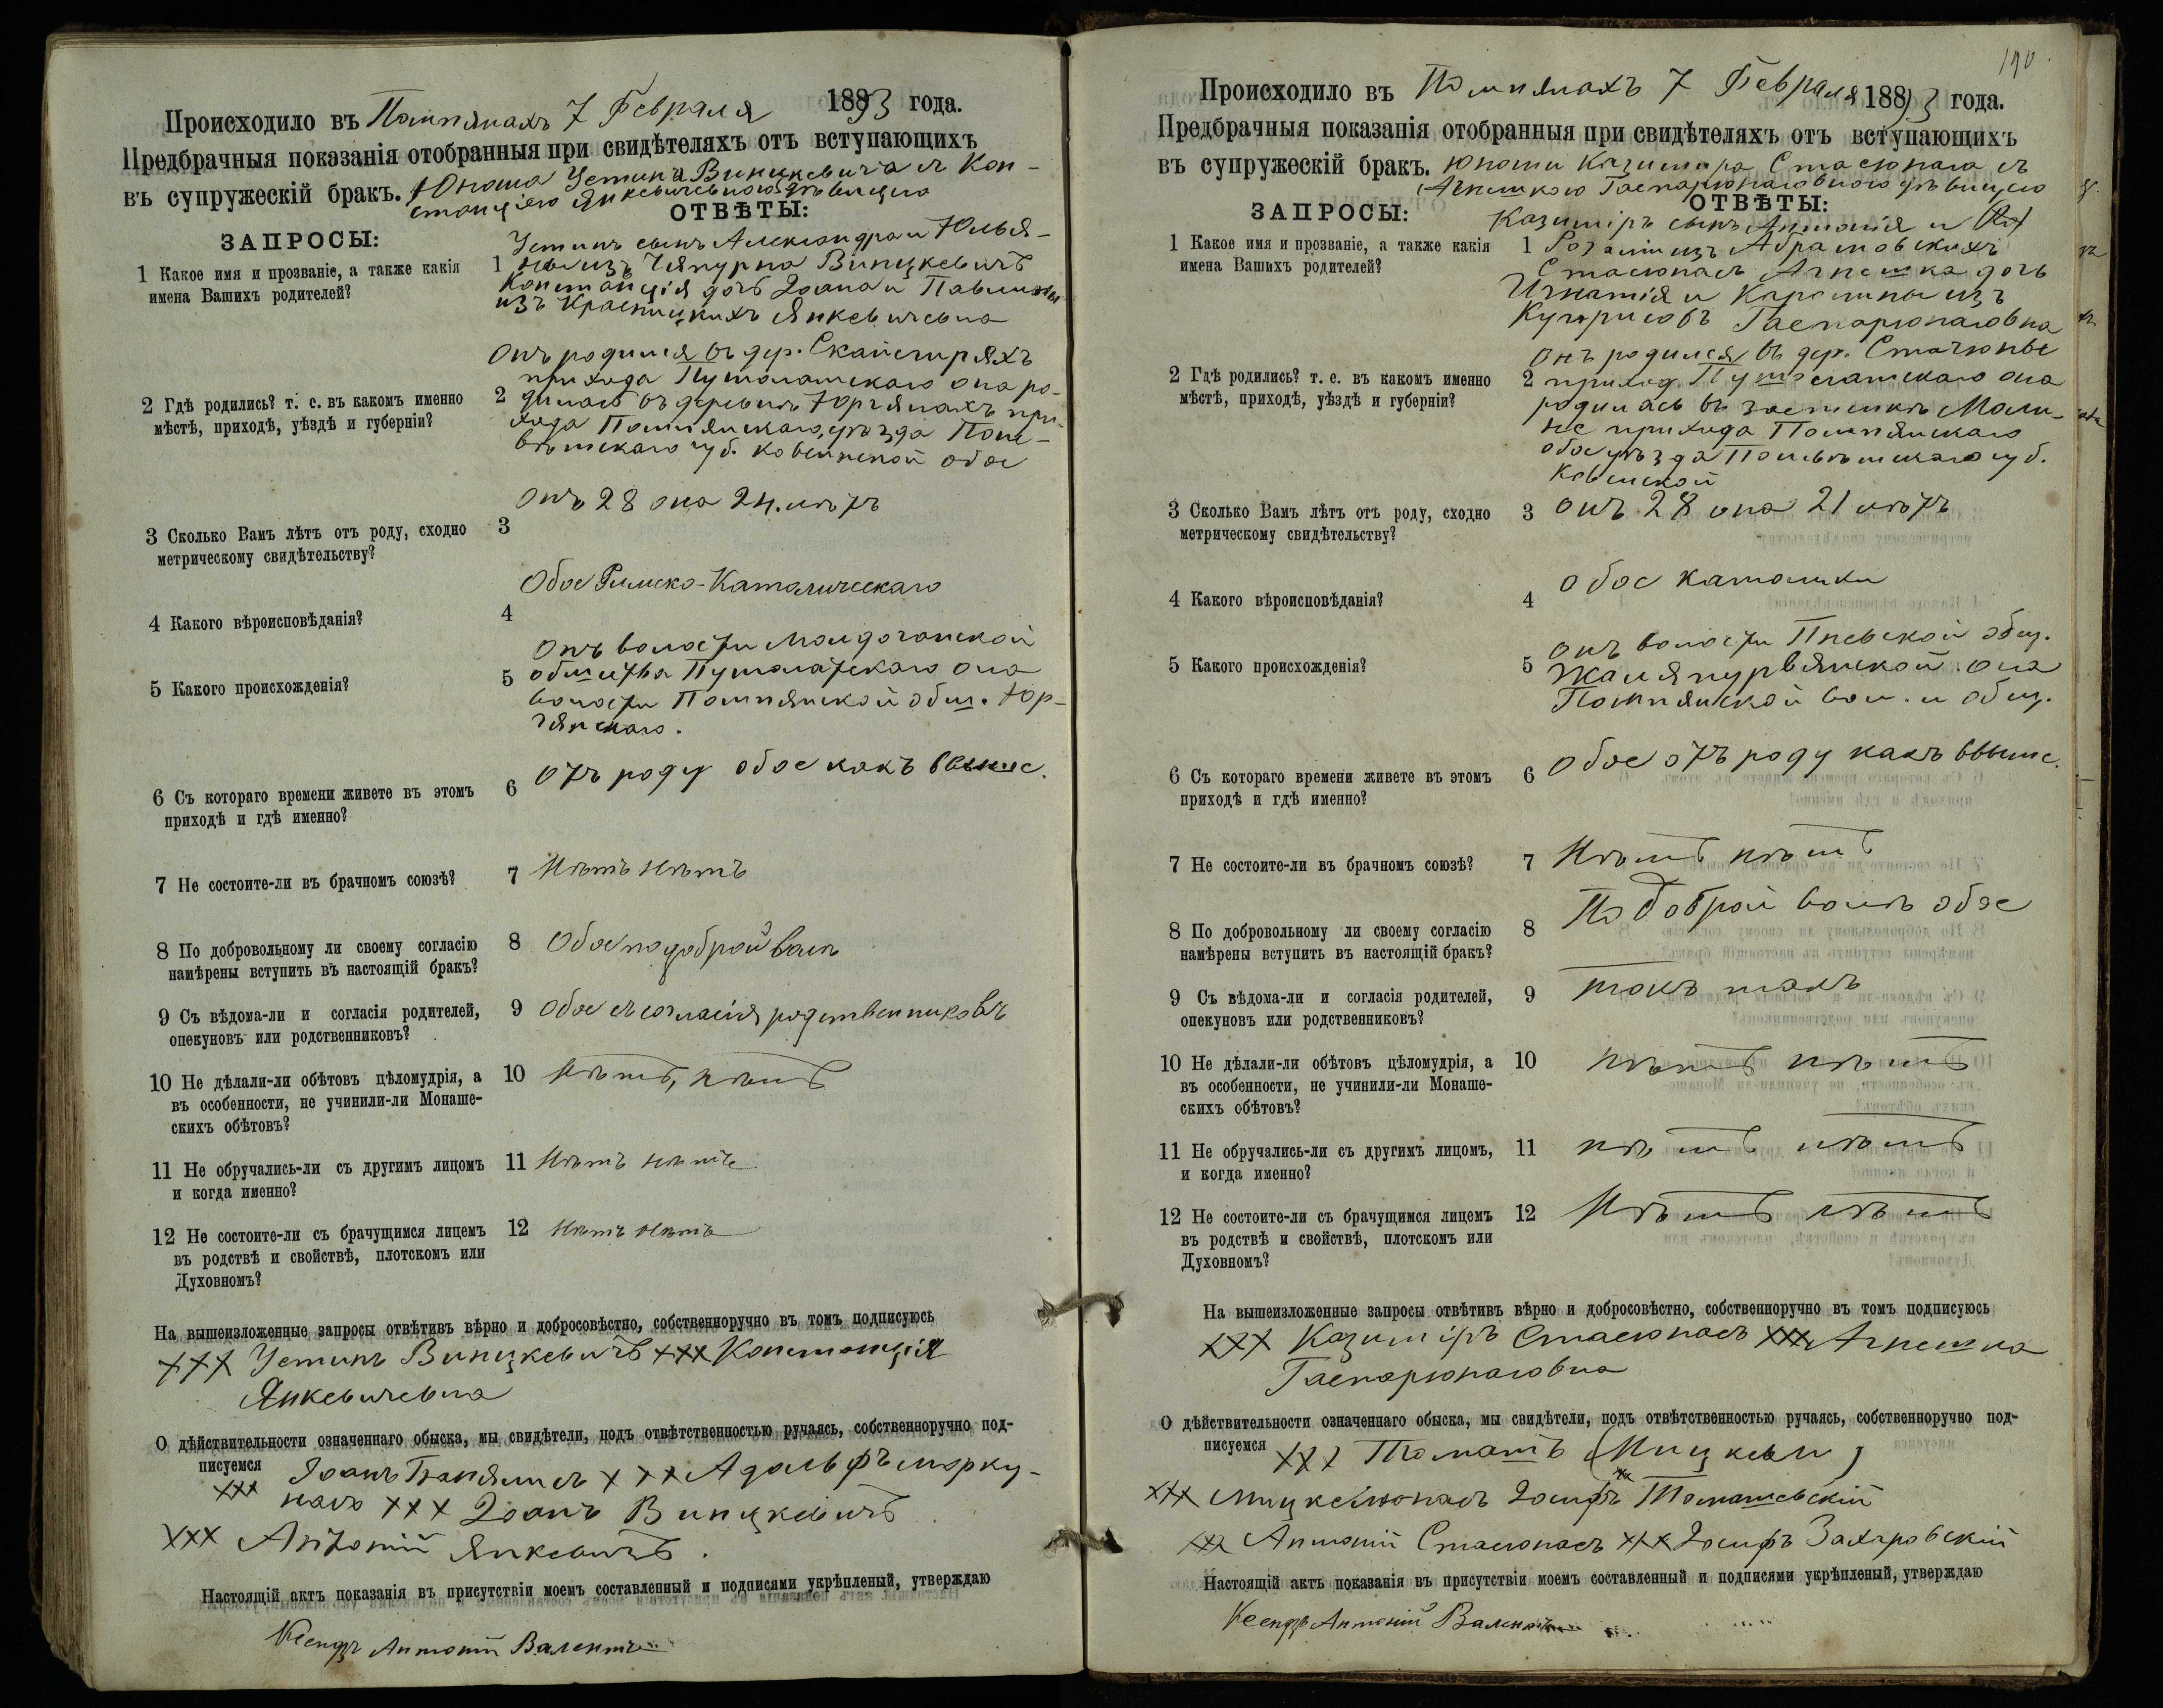 Происходило въ Помпянахъ 7 Февраля 1893 года.
Предбрачныя показанія отобранныя при свидѣтеляхъ отъ вступающихъ
въ супружескій бракъ. Юноша Устина Виницкевича съ Кон-
станціею Янкевичевною дѣвицею
ЗАПРОСЫ:
ОТВѢТЫ:
1 Какое имя и прозваніе, а также какія
имена Вашихъ родителей?
Устинъ сынъ Александра и Юлья-
1 ны изъ Виницкевичъ
Констанція дочь Іоана и Павлины
изъ Красницкихъ Янкевичевна
2 Гдѣ родились? т. е. въ какомъ именно
мѣстѣ, приходѣ, уѣздѣ и губерніи?
Онъ родился въ дер. Скайсгиряхъ
прихода Пушолатскаго она ро-
2 дилась въ деревнѣ Юргянахъ при-
хода Помпянскаго, уѣзда Поне-
вѣжскаго губ. Ковенской обое
3 Сколько Вамъ лѣтъ отъ роду, сходно
метрическому свидѣтельству?
Онъ 28 она 24 лѣтъ
3
4 Какого вѣроисповѣданія?
Обое Римско-Католическаго
4
5 Какого происхожденія?
Онъ волости
5 общества Пушолатскаго она
волости Помпянской общ. Юр-
гянскаго.
6 Съ котораго времени живете въ этомъ
приходѣ и гдѣ именно?
6 Отъ роду обое какъ ввыше.
7 Не состоите-ли въ брачномъ союзѣ?
7 Нѣтъ нѣтъ
8 По добровольному ли своему согласію
намѣрены вступить въ настоящій бракъ?
8 Обое по доброй волѣ
9 Съ вѣдома-ли и согласія родителей,
опекуновъ или родственниковъ?
9 Обое съ согласія родственниковъ
10 Не дѣлали-ли обѣтовъ цѣломудрія, а
въ особенности, не учинили-ли Монаше-
скихъ обѣтовъ?
10 Нѣтъ, нѣтъ
11 Не обручались-ли съ другимъ лицомъ
и когда именно?
11 Нѣтъ нѣтъ
12 Не состоите-ли съ брачущимся лицемъ
въ родствѣ и свойствѣ, плотскомъ или
Духовномъ?
12 Нѣтъ нѣтъ
На вышеизложенные запросы отвѣтивъ вѣрно и добросовѣстно, собственноручно въ томъ подписуюсь
+++ Устинъ Виницкевичъ +++ Констанція
Янкевичевна
О дѣйствительности означеннаго обыска, мы свидѣтели, подъ отвѣтственностью ручаясь, собственноручно под-
писуемся
+++ Іоанъ +++ Адольфъ Морку-
насъ +++ Іоанъ Виницкевичъ
+++ Антоній Янкевичъ.
Настоящій актъ показанія въ присутствіи моемъ составленный и подписями укрѣпленый, утверждаю
Ксендзъ Антоній
190.
Происходило въ Помпянахъ 7 Февраля 1893 года.
Предбрачныя показанія отобранныя при свидѣтеляхъ отъ вступающихъ
въ супружескій бракъ. юноши Казимира Стасюнаса съ
Агнешкою Гаспарюнасовною дѣвицею
ЗАПРОСЫ:
ОТВѢТЫ:
1 Какое имя и прозваніе, а также какія
имена Вашихъ родителей?
Казиміръ сынъ Антонія и
1 Розаліи изъ Абрамовскихъ
Стасюнасъ Агнешка дочь
Игнатія и Каролины изъ
Гаспарюнасовна
2 Гдѣ родились? т. е. въ какомъ именно
мѣстѣ, приходѣ, уѣздѣ и губерніи?
Онъ родился въ дер. Стачюны
2 приход. Пушолатскаго она
родилась въ застѣнкѣ Мали-
не прихода Помпянскаго
обое уѣзда Поневѣжскаго губ.
Ковенской
3 Сколько Вамъ лѣтъ отъ роду, сходно
метрическому свидѣтельству?
3 Онъ 28 она 21 лѣтъ
4 Какого вѣроисповѣданія?
обое католики
4
5 Какого происхожденія?
онъ волости общ.
5 она
Помпянской вол. и общ.
6 Съ котораго времени живете въ этомъ
приходѣ и гдѣ именно?
6 Обое отъ роду какъ ввыше.
7 Не состоите-ли въ брачномъ союзѣ?
7 Нѣтъ нѣтъ
8 По добровольному ли своему согласію
намѣрены вступить въ настоящій бракъ?
8 По доброй волѣ обое
9 Съ вѣдома-ли и согласія родителей,
опекуновъ или родственниковъ?
9 такъ такъ
10 Не дѣлали-ли обѣтовъ цѣломудрія, а
въ особенности, не учинили-ли Монаше-
скихъ обѣтовъ?
10 нѣтъ нѣтъ
11 Не обручались-ли съ другимъ лицомъ,
и когда именно?
11 нѣтъ нѣтъ
12 Не состоите-ли съ брачущимся лицемъ
въ родствѣ и свойствѣ, плотскомъ или
Духовномъ?
12 Нѣтъ нѣтъ
На вышеизложенные запросы отвѣтивъ вѣрно и добросовѣстно, собственноручно въ томъ подписуюсь
+++ Казиміръ Стасюнасъ +++ Агнешка
Гаспарюнасовна
О дѣйствительности означеннаго обыска, мы свидѣтели, подъ отвѣтственностью ручаясь, собственноручно под-
писуемся +++ Томашъ
+++ Мицкевюнасъ Іосифъ Томашевскій
+++ Антоній Стасюнасъ +++ Іосифъ Захаровскій
Настоящій актъ показанія въ присутствіи моемъ составленный и подписями укрѣпленый, утверждаю
Ксендзъ Антоній